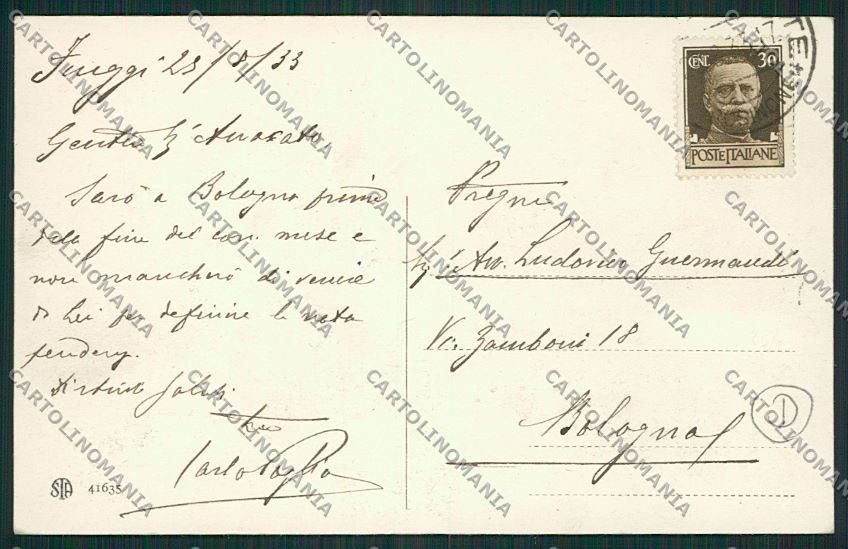 Fiuggi 23/8/33
Gentile Avvocato,
Sarò a Bologna prima
della fine del corr. mese e
non mancherò di venire
da Lei per definire la nota
pendenza.
Distinti Saluti
Carlo Paglia
STA 41635
CENT. 30
POSTE ITALIANE
Pregmo
Sig. Avv. Ludovico Guermandi
Via Zamboni 18
Bologna
1
CARTOLINOMANIA